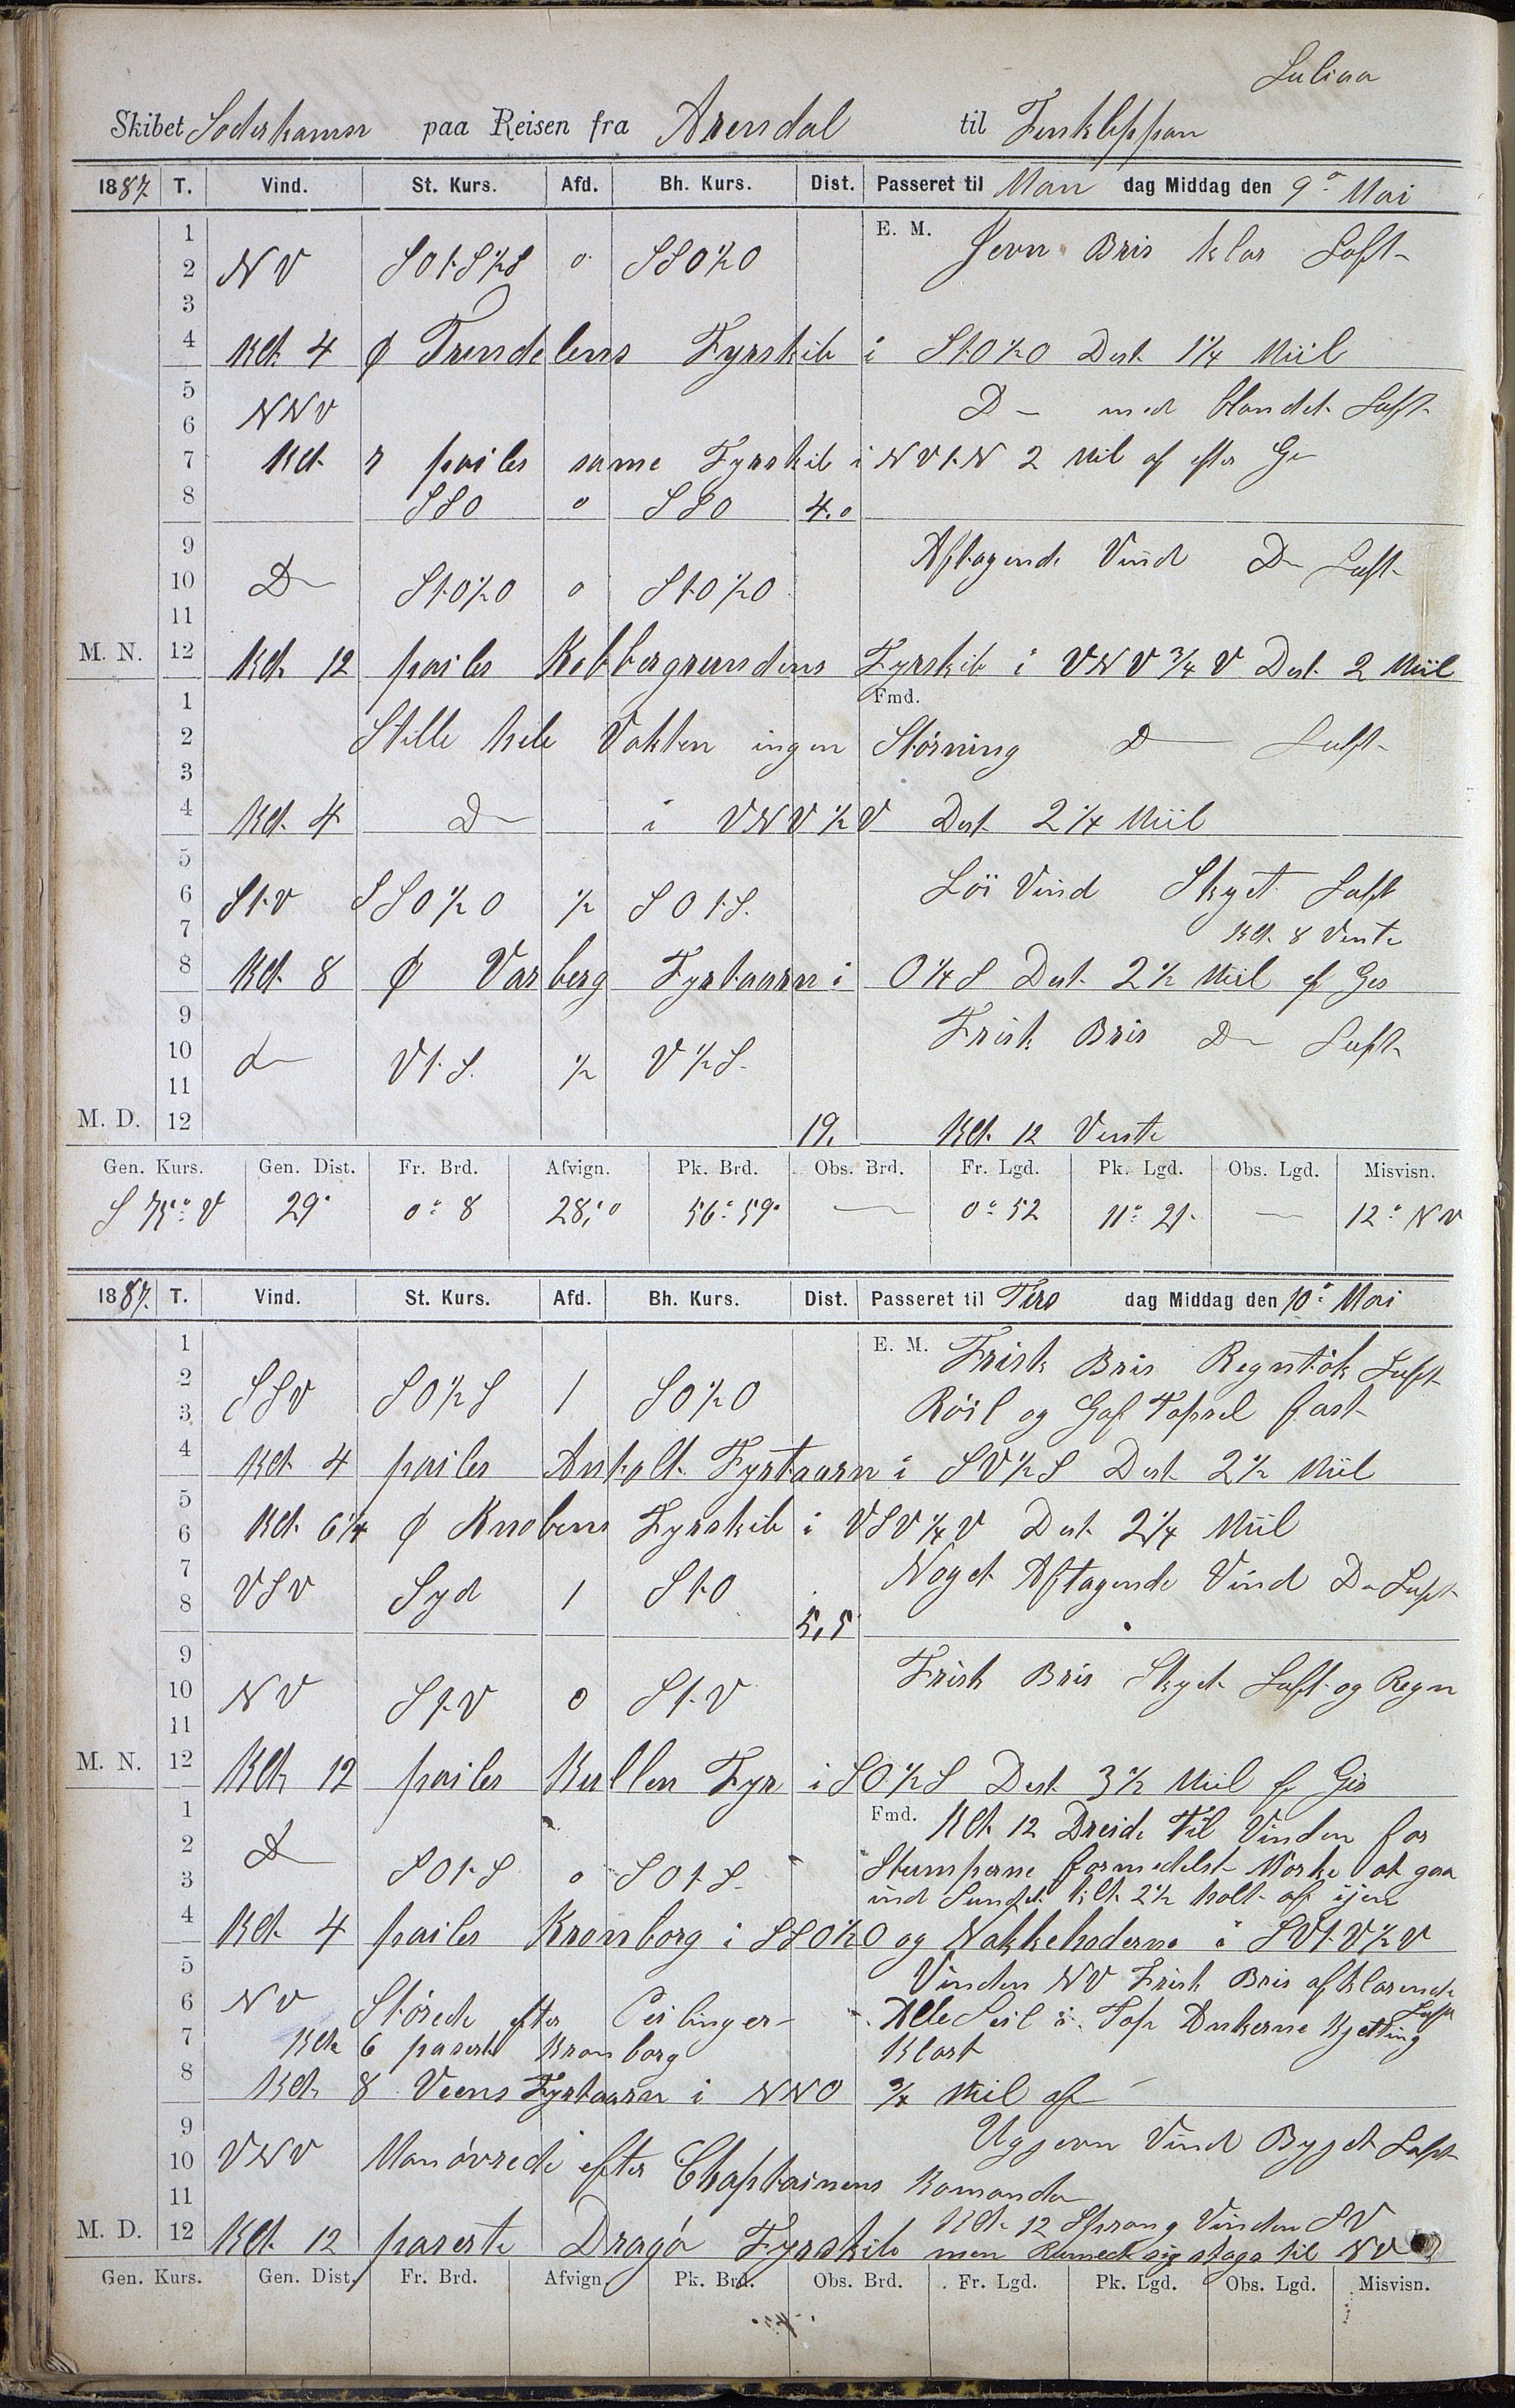 Skibet Soderhamn paa Reisen fra Arendal til Finkleppan
1887. T. Vind. St. Kurs. Afd. Bh. Kurs. Dist. Passeret til Man dag Middag den 9de Mai
1 E. M. Jevn Bris klar Luft
2 NV SOtS½S 0 SSO½O
3
4 Kl. 4 ϕ Trindelens Fyrskib i StO½O Dist 1¼ Miil
5 D— med blandet Luft
6 NNV
7 Kl. 7 peiles same Fyrskib i NVtN 2 Mil af efter
8 SSO 0 SSO 4.0
9 Aftagende Vind D— Luft
10 D— StO½O 0 StO½O
11
M. N. 12 Kl. 12 peiles Kobbergrundens Fyrskib i VNV¾V Dist. 2 Miil
1 Fmd.
2 Stille hele Vakten ingen Störning D— Luft
3
4 Kl. 4 D— i VNV½V Dist 2¼ Miil
5
6 StV SSO½O ½ SOtS. Löi Vind Skyet Luft
7 Kl. 8 Vente
8 Kl. 8 ϕ Varberg Fyrtaarn i O¼S Dist. 2½ Miil ef Gis
9 Frisk Bris D— Luft
10 D— VtS. ½ V½S.
11
M. D. 12 19. Kl. 12 Vente
Gen. Kurs. Gen. Dist. Fr. Brd. Afvign. Pk. Brd. Obs. Brd. Fr. Lgd. Pk. Lgd. Obs. Lgd. Misvisn.
S 75° V 29' 0° 8 28,0 56° 59' — 0° 52 11° 21. — 12° NV
1887. T. Vind. St. Kurs. Afd. Bh. Kurs. Dist. Passeret til Tirs dag Middag den 10de Mai
1 E. M. Frisk Bris Regntök Luft
2 SSV SO½S 1 SO½O
3 Röil og Gaf Topsel fast
4 Kl. 4 peiles Anholt Fyrtaarn i SV½S Dist 2½ Miil
5
6 Kl. 6¼ ϕ Knobens Fyrskib i VSV¼V Dist 2¼ Miil
7 VSV Syd 1 StO Noget Aftagende Vind D— Luft
8 5,5
9 Frisk Bris Skyet Luft og Regn
10 NV StV 0 StV
11
M. N. 12 Kl. 12 peiles Kullen Fyr i SO½S Dist 3½ Miil ef Gis
1 Fmd. Kl. 12 Dreide Til Vinden for
2 D— SOtS 0 SOtS Stumperne formedelst Mörke at gaa
3 ind Sundet Kl. 2½ holt af ijen
4 Kl. 4 peiles Kronborg i SSO½O og Nakkehoderne i SVtV½V
5 Vinden NV Frisk Bris afklarende Luft
6 NV Störede efter Peilinger Alle Seil i Top Dukerne Kjetting
7 Kl. 6 paserte Kronborg Klart
8 Kl. 8 Veens Fyrtaarn i NNO ¾ Mil af
9 Ugjevn Vind Bygjet Luft
10 VNV Manövrede efter Chaptainens Komando
11 Kl. 12 Sprang Vinden SV
M. D. 12 Kl. 12 paserte Dragö Fyrskib men sig strags til NV
Gen. Kurs. Gen. Dist. Fr. Brd. Afvign. Pk. Brd. Obs. Brd. Fr. Lgd. Pk. Lgd. Obs. Lgd. Misvisn.